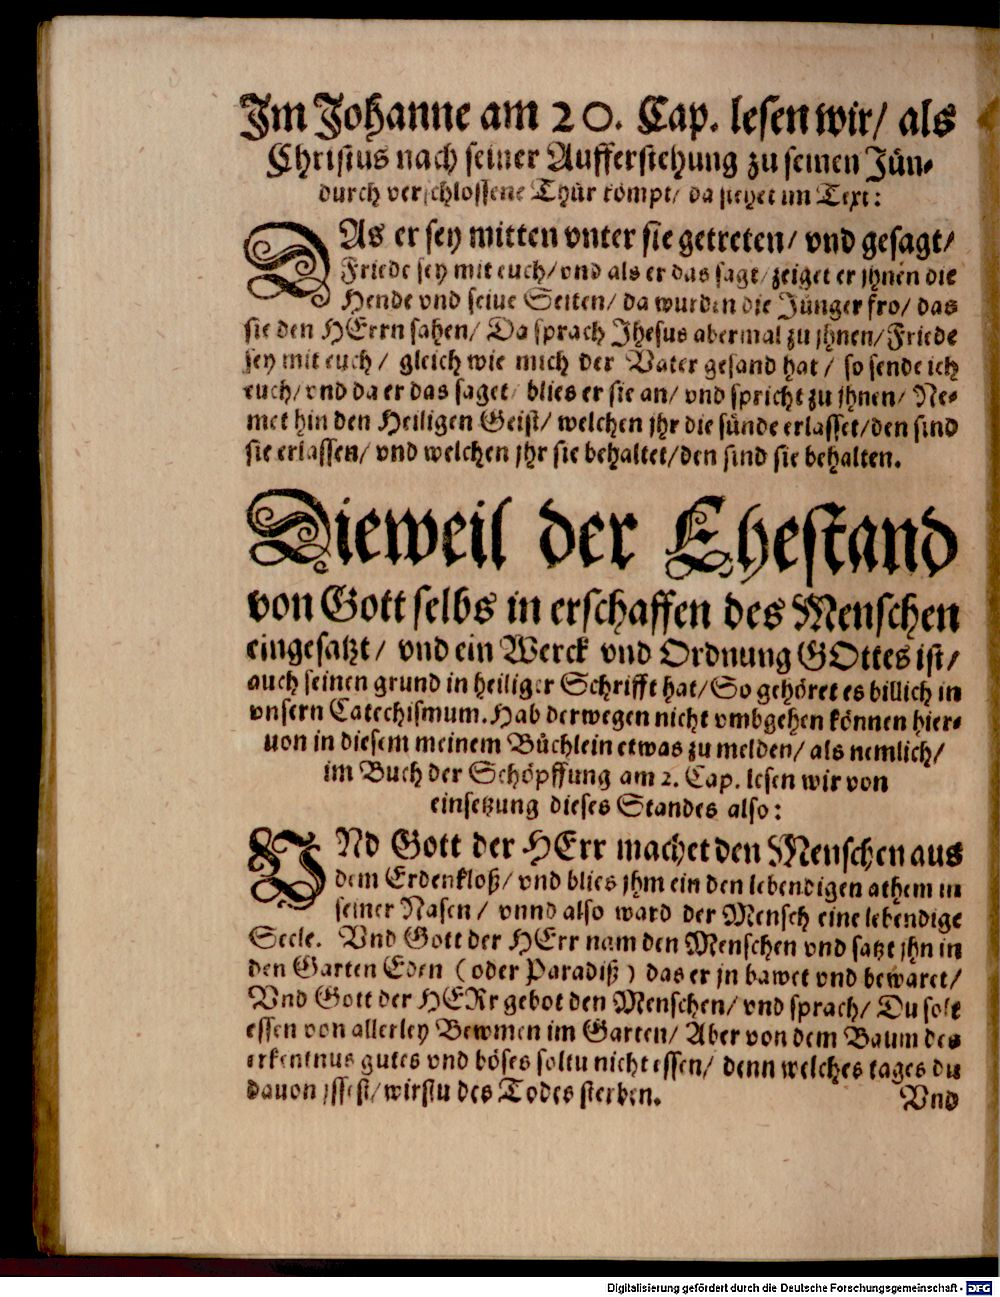 Im Johanne am 20. Cap. lesen wir/ als
Christus nach seiner Aufferstehung zu seinen Jün-
durch verschlossene Thür kömpt/ da stehet im Text:
DAs er sey mitten vnter sie getreten/ vnd gesagt/
Friede sey mit euch/ vnd als er das sagt/ zeiget er jhnen die
Hende vnd seine Seiten/ da wurden die Jünger fro/ das
sie den HErrn sahen/ Da sprach Jhesus abermal zu jhnen/ Friede
sey mit euch/ gleich wie mich der Vater gesand hat/ so sende ich
euch/ vnd da er das saget/ blies er sie an/ vnd spricht zu jhnen/ Ne-
met hin den Heiligen Geist/ welchen jhr die sünde erlasset/ den sind
sie erlassen/ vnd welchen jhr sie behaltet/ den sind sie behalten.
Dieweil der Ehestand
von Gott selbs in erschaffen des Menschen
eingesatzt/ vnd ein Werck vnd Ordnung GOttes ist/
auch seinen grund in heiliger Schrifft hat/ So gehöret es billich in
vnsern Catechismum. Hab derwegen nicht vmbgehen können hier-
uon in diesem meinem Büchlein etwas zu melden/ als nemlich/
im Buch der Schöpffung am 2. Cap. lesen wir von
einsetzung dieses Standes also:
VNd Gott der HErr machet den Menschen aus
dem Erdenkloß/ vnd blies jhm ein den lebendigen athem in
seiner Nasen/ vnnd also ward der Mensch eine lebendige
Seele. Vnd Gott der HErr nam den Menschen vnd satzt jhn in
den Garten Eden (oder Paradiß) das er jn bawet vnd bewaret/
Vnd Gott der HERr gebot den Menschen/ vnd sprach/ Du solt
essen von allerley Bewmen im Garten/ Aber von dem Baum des
erkentnus gutes vnd böses soltu nicht essen/ denn welches tages du
dauon jssest/ wirstu des Todes sterben.
Vnd
Digitalisierung gefördert durch die Deutsche Forschungsgemeinschaft - DFG